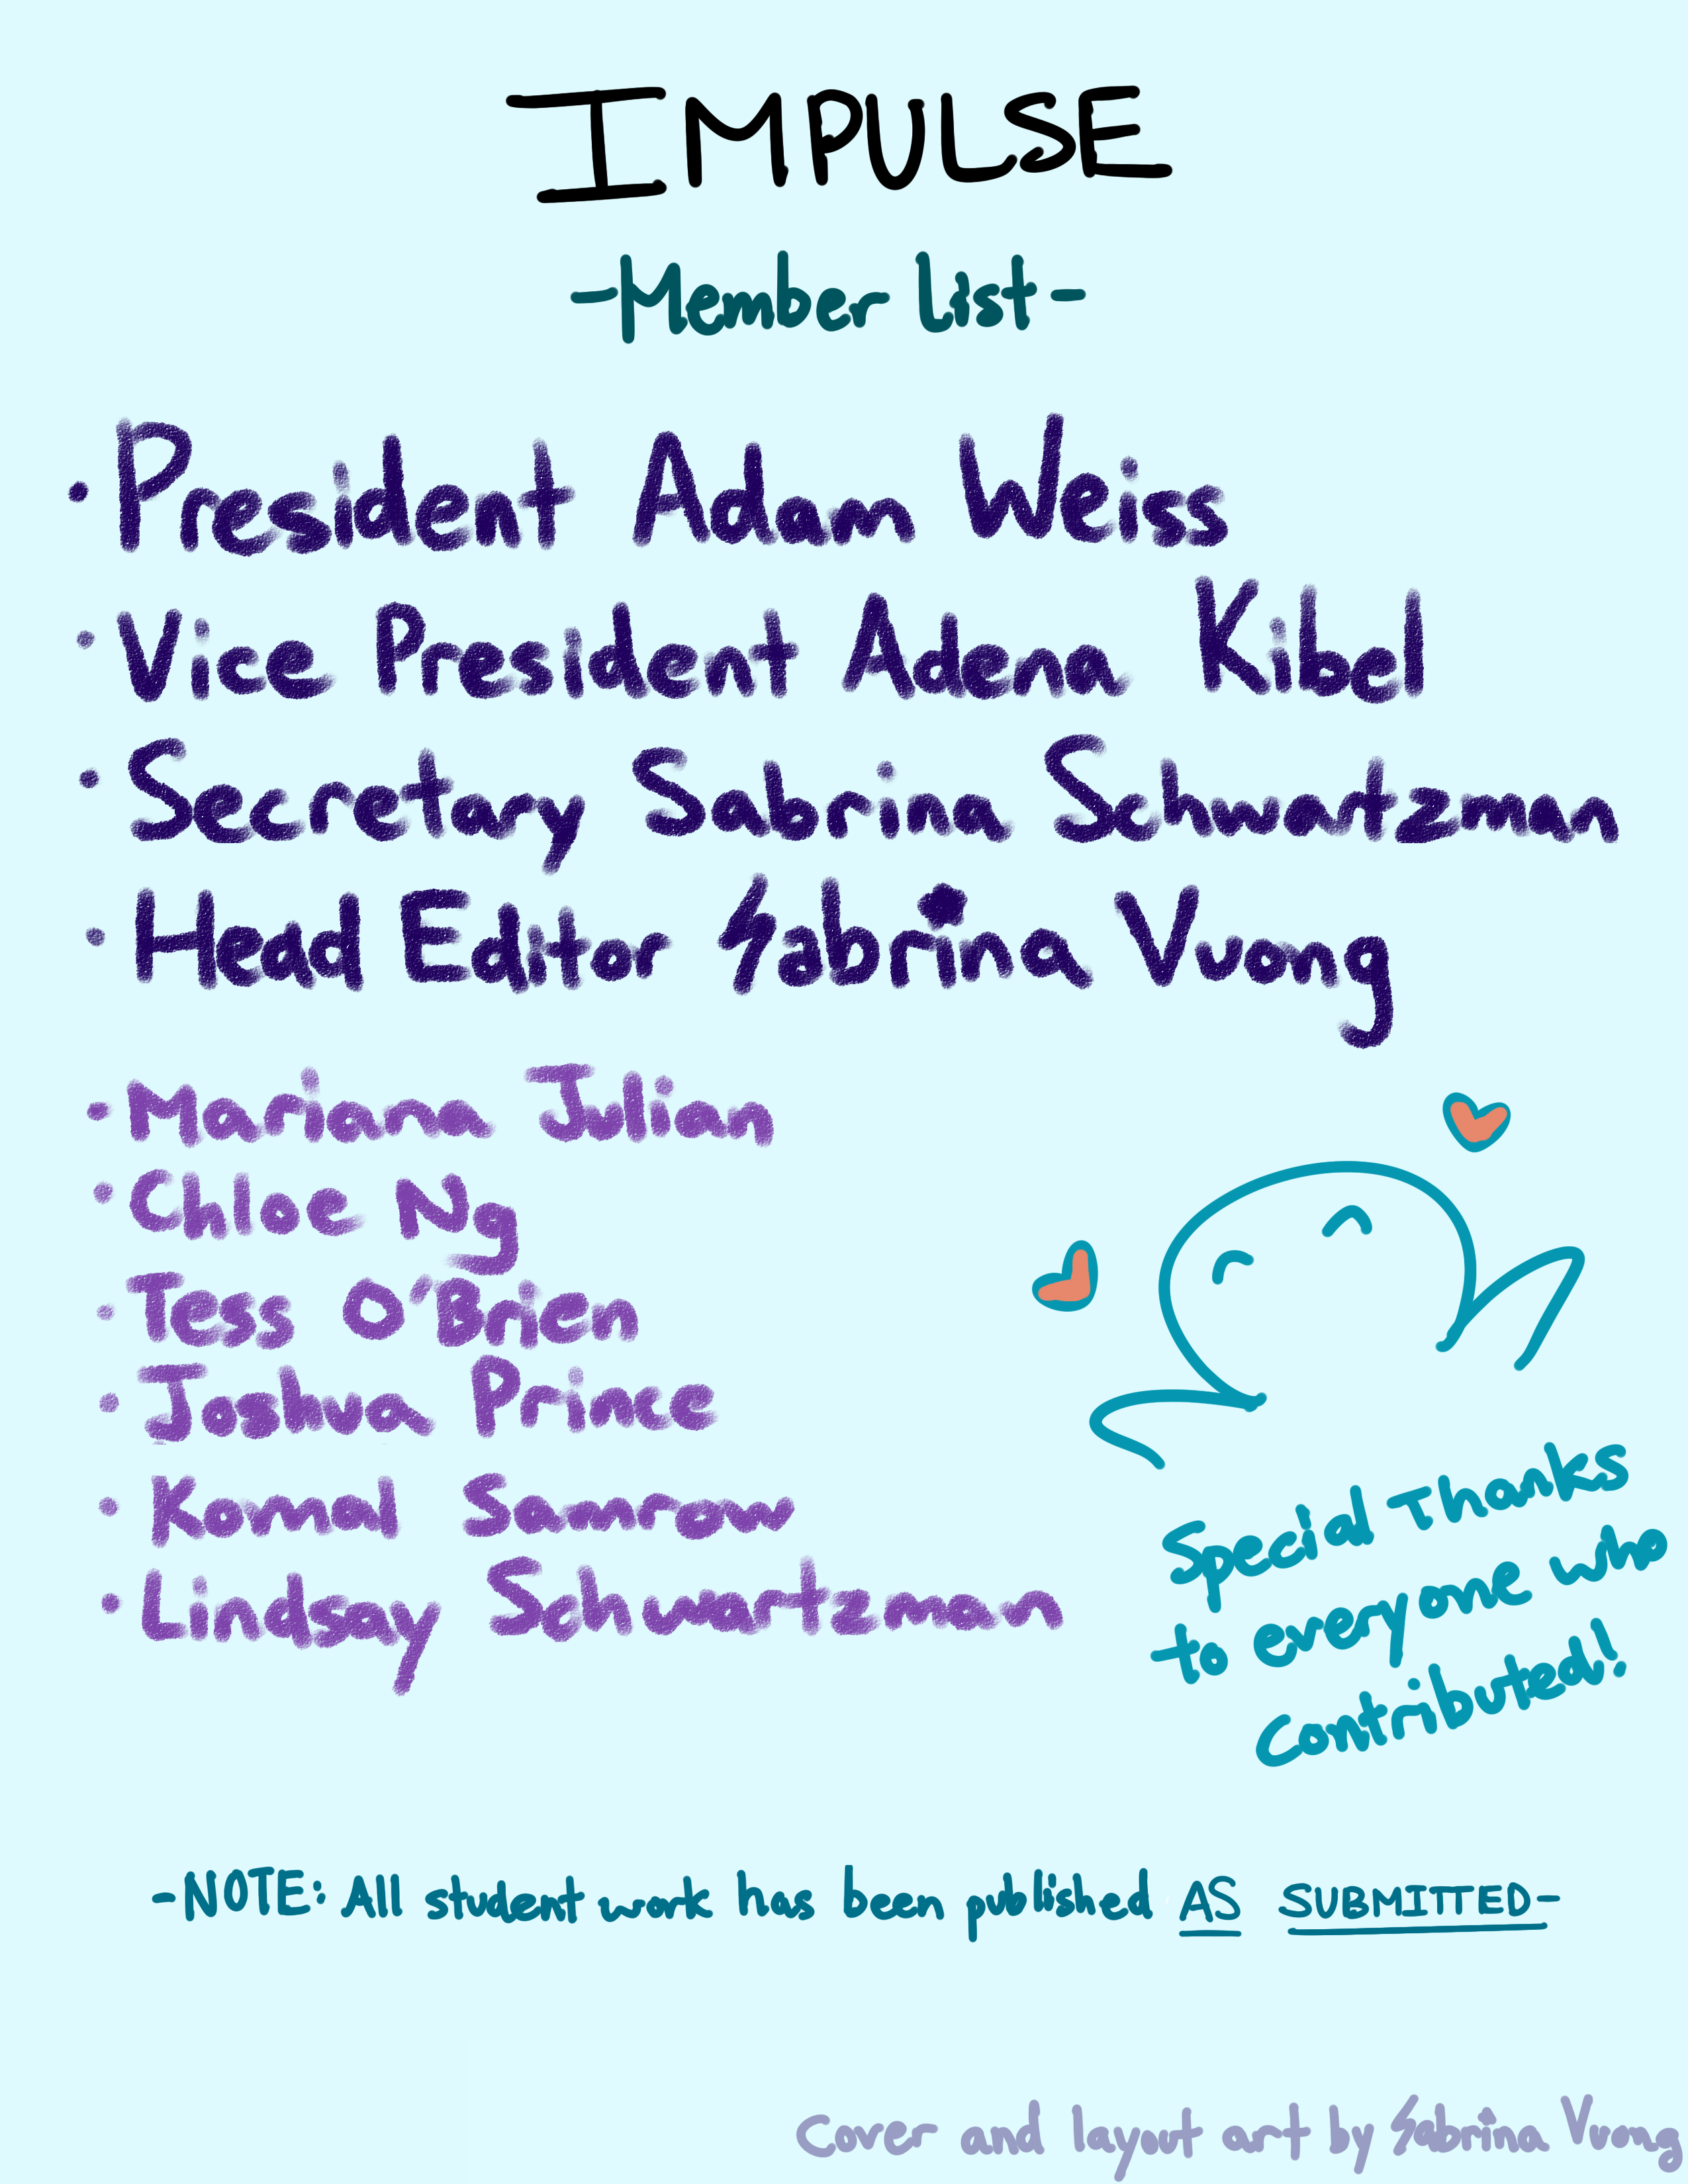 IMPULSE
-Member List-
• President Adam Weiss
• Vice President Adena Kibel
• Secretary Sabrina Schwartzman
• Head Editor Sabrina Vuong
• Mariana Julian
• Chloe Ng
• Tess O'Brien
• Joshua Prince
• Komal Samrow
• Lindsay Schwartzman
Special Thanks
to everyone who
contributed!
-NOTE: All student work has been published AS SUBMITTED-
Cover and layout art by Sabrina Vuong